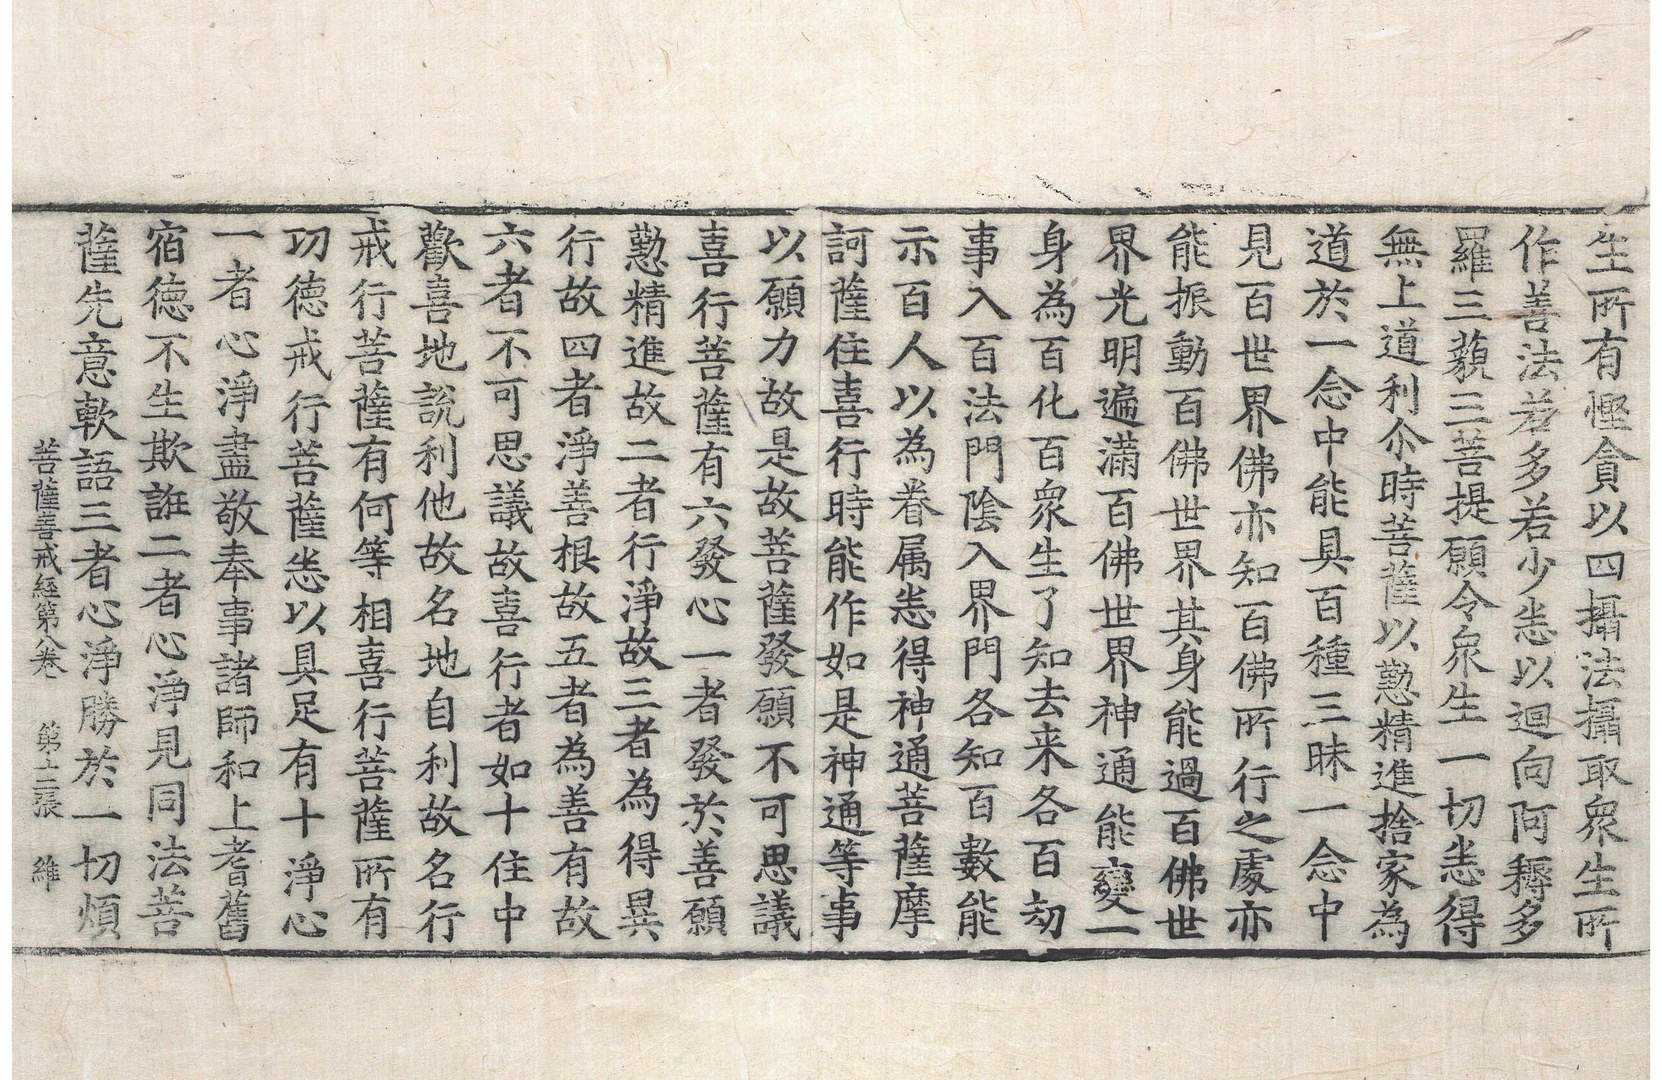 生所有慳貪以四攝法攝取衆生所
作善法若多若少悉以迴向阿耨多
羅三藐三菩提願令衆生一切悉得
無上道利尒時菩薩以懃精進捨家為
道於一念中能具百種三昧一念中
見百世界佛亦知百佛所行之處亦
能振動百佛世界其身能過百佛世
界光明遍滿百佛世界神通能變一
身為百化百衆生了知去来各百劫
事入百法門陰入界門各知百數能
示百人以為眷属悉得神通菩薩摩
訶薩住喜行時能作如是神通等事
以願力故是故菩薩發願不可思議
喜行菩薩有六發心一者發於善願
懃精進故二者行淨故三者為得異
行故四者淨善根故五者為善有故
六者不可思議故喜行者如十住中
歡喜地說利他故名地自利故名行
戒行菩薩有何等相喜行菩薩所有
功德戒行菩薩悉以具足有十淨心
一者心淨盡敬奉事諸師和上耆舊
宿德不生欺誑二者心淨見同法菩
薩先意軟語三者心淨勝於一切煩
菩薩善戒経第八卷 第十二張 維